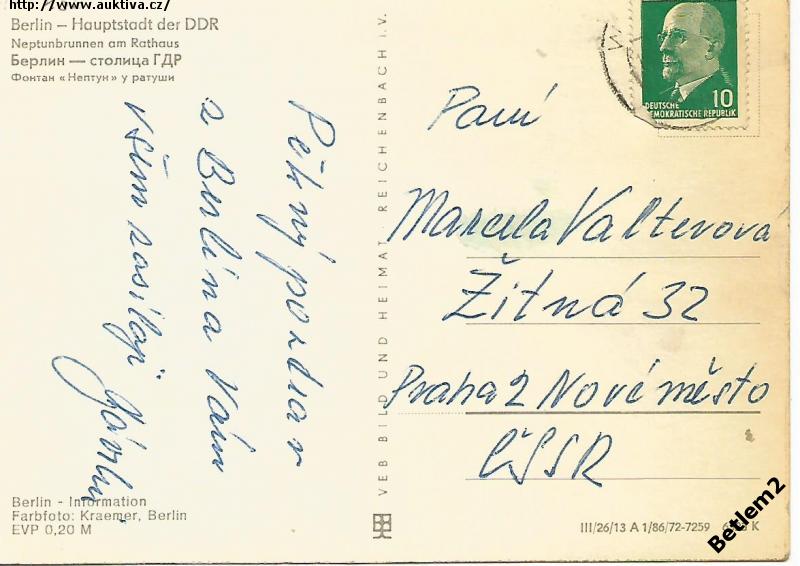 http://www.auktiva.cz/
Berlin – Hauptstadt der DDR
Neptunbrunnen am Rathaus
Берлин — столица ГДР
Фонтан «Нептун» у ратуши
Pěkný pozdrav
z Berlína Vám
všem zasílají
Berlin - Information
Farbfoto: Kraemer, Berlin
EVP 0,20 M
VEB BILD UND HEIMAT · REICHENBACH I.V.
10
DEUTSCHE
DEMOKRATISCHE REPUBLIK
Paní
Marcela Valterová
Žitná 32
Praha 2 Nové město
ČSSR
III/26/13 A 1/86/72-7259
K
Betlem2